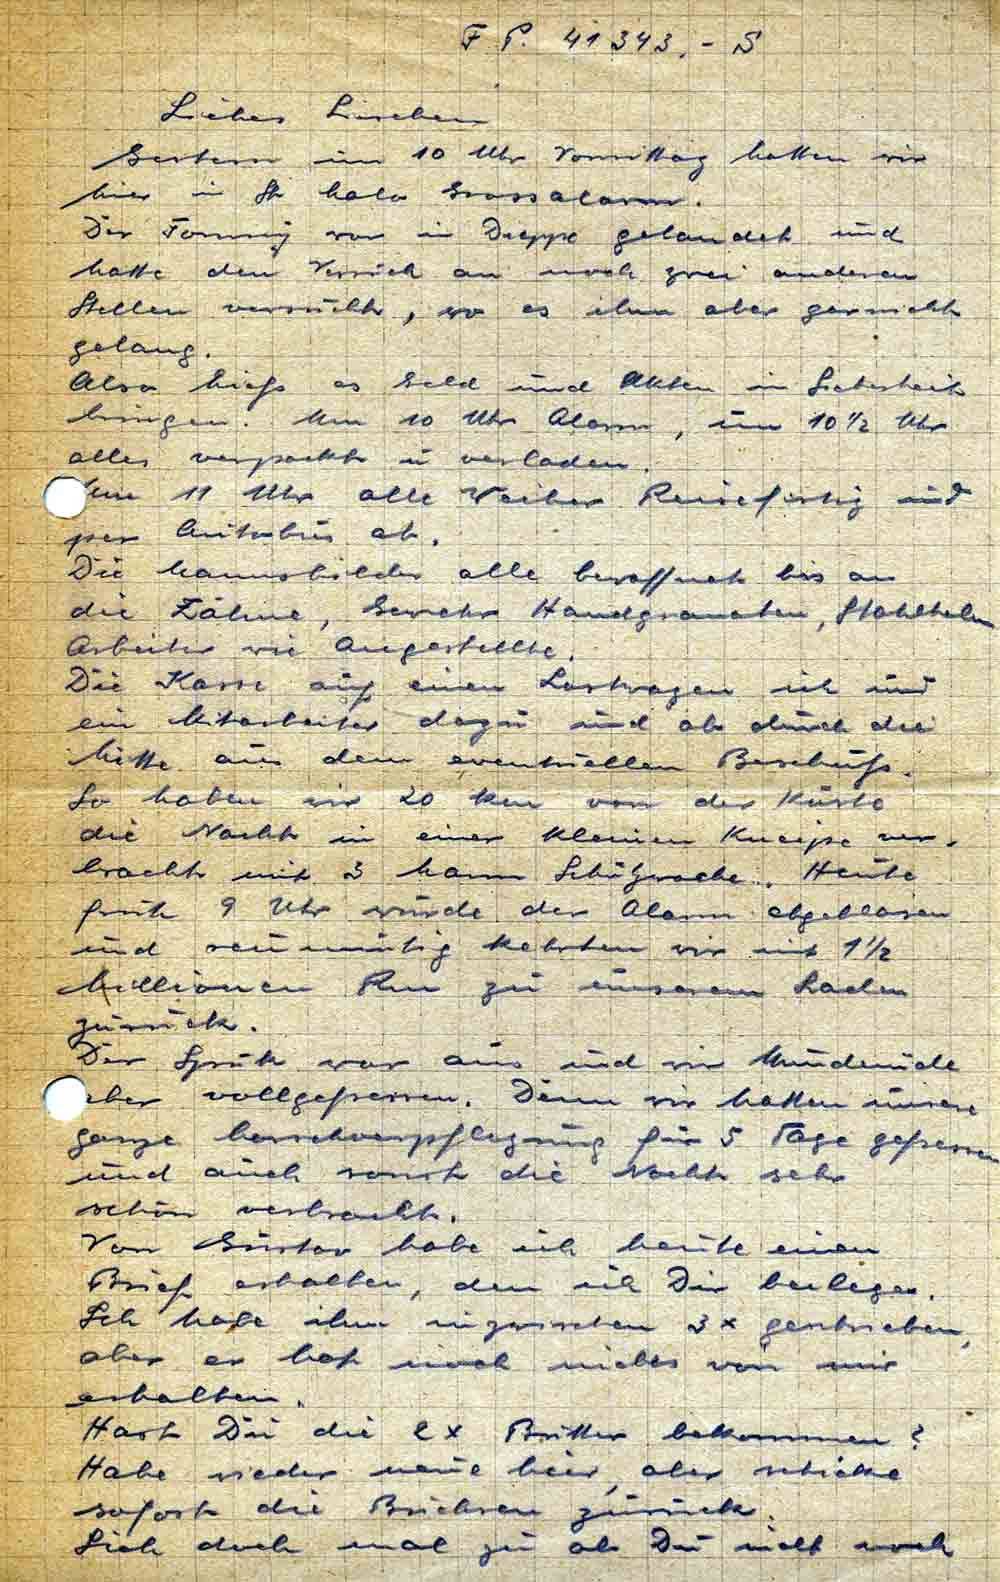 F P. 41343.- S
Liebes Lieschen
Gestern um 10 Uhr Vormittag hatten wir
hier in St Malo Grossalarm.
Der Tommy war in Dieppe gelandet und
hatte den Versuch an noch zwei anderen
Stellen versucht, wo es ihm aber garnicht
gelang.
Also hiess es Geld und Akten in Sicherheit
bringen. Um 10 Uhr Alarm, um 10 1/2 Uhr
alles verpackt u verladen.
Um 11 Uhr alle Weiber Reisefertig und
per Autobus ab.
Die Mannsbilder alle bewaffnet bis an
die Zähne, Gewehr Handgranaten, Stahlhelm
Arbeiter wie Angestellte.
Die Kasse auf einen Lastwagen ich und
ein Mitarbeiter dazu und ab durch die
Mitte aus dem eventuellen Beschuss.
So haben wir 20 km von der Küste
die Nacht in einer kleinen Kneipe ver-
bracht mit 3 Mann Schutzwache. Heute
früh 9 Uhr wurde der Alarm abgeblasen
und reumütig kehrten wir mit 1 1/2
Millionen Rm zu unserem Laden
zurück.
Der Spuk war aus und wir Hundemüde
aber vollgefressen. Denn wir hatten unsere
ganze Marschverpflegung für 5 Tage gefressen
und auch sonst die Nacht sehr
schön verbracht.
Von Gustav habe ich heute einen
Brief erhalten, den ich Dir beilege.
Ich habe ihm inzwischen 3x geschrieben,
aber er hat noch nichts von mir
erhalten.
Hast Du die 2x Butter bekommen?
Habe wieder neue hier, aber schicke
sofort die Büchsen zurück.
Sieh doch mal zu ob Du nicht noch